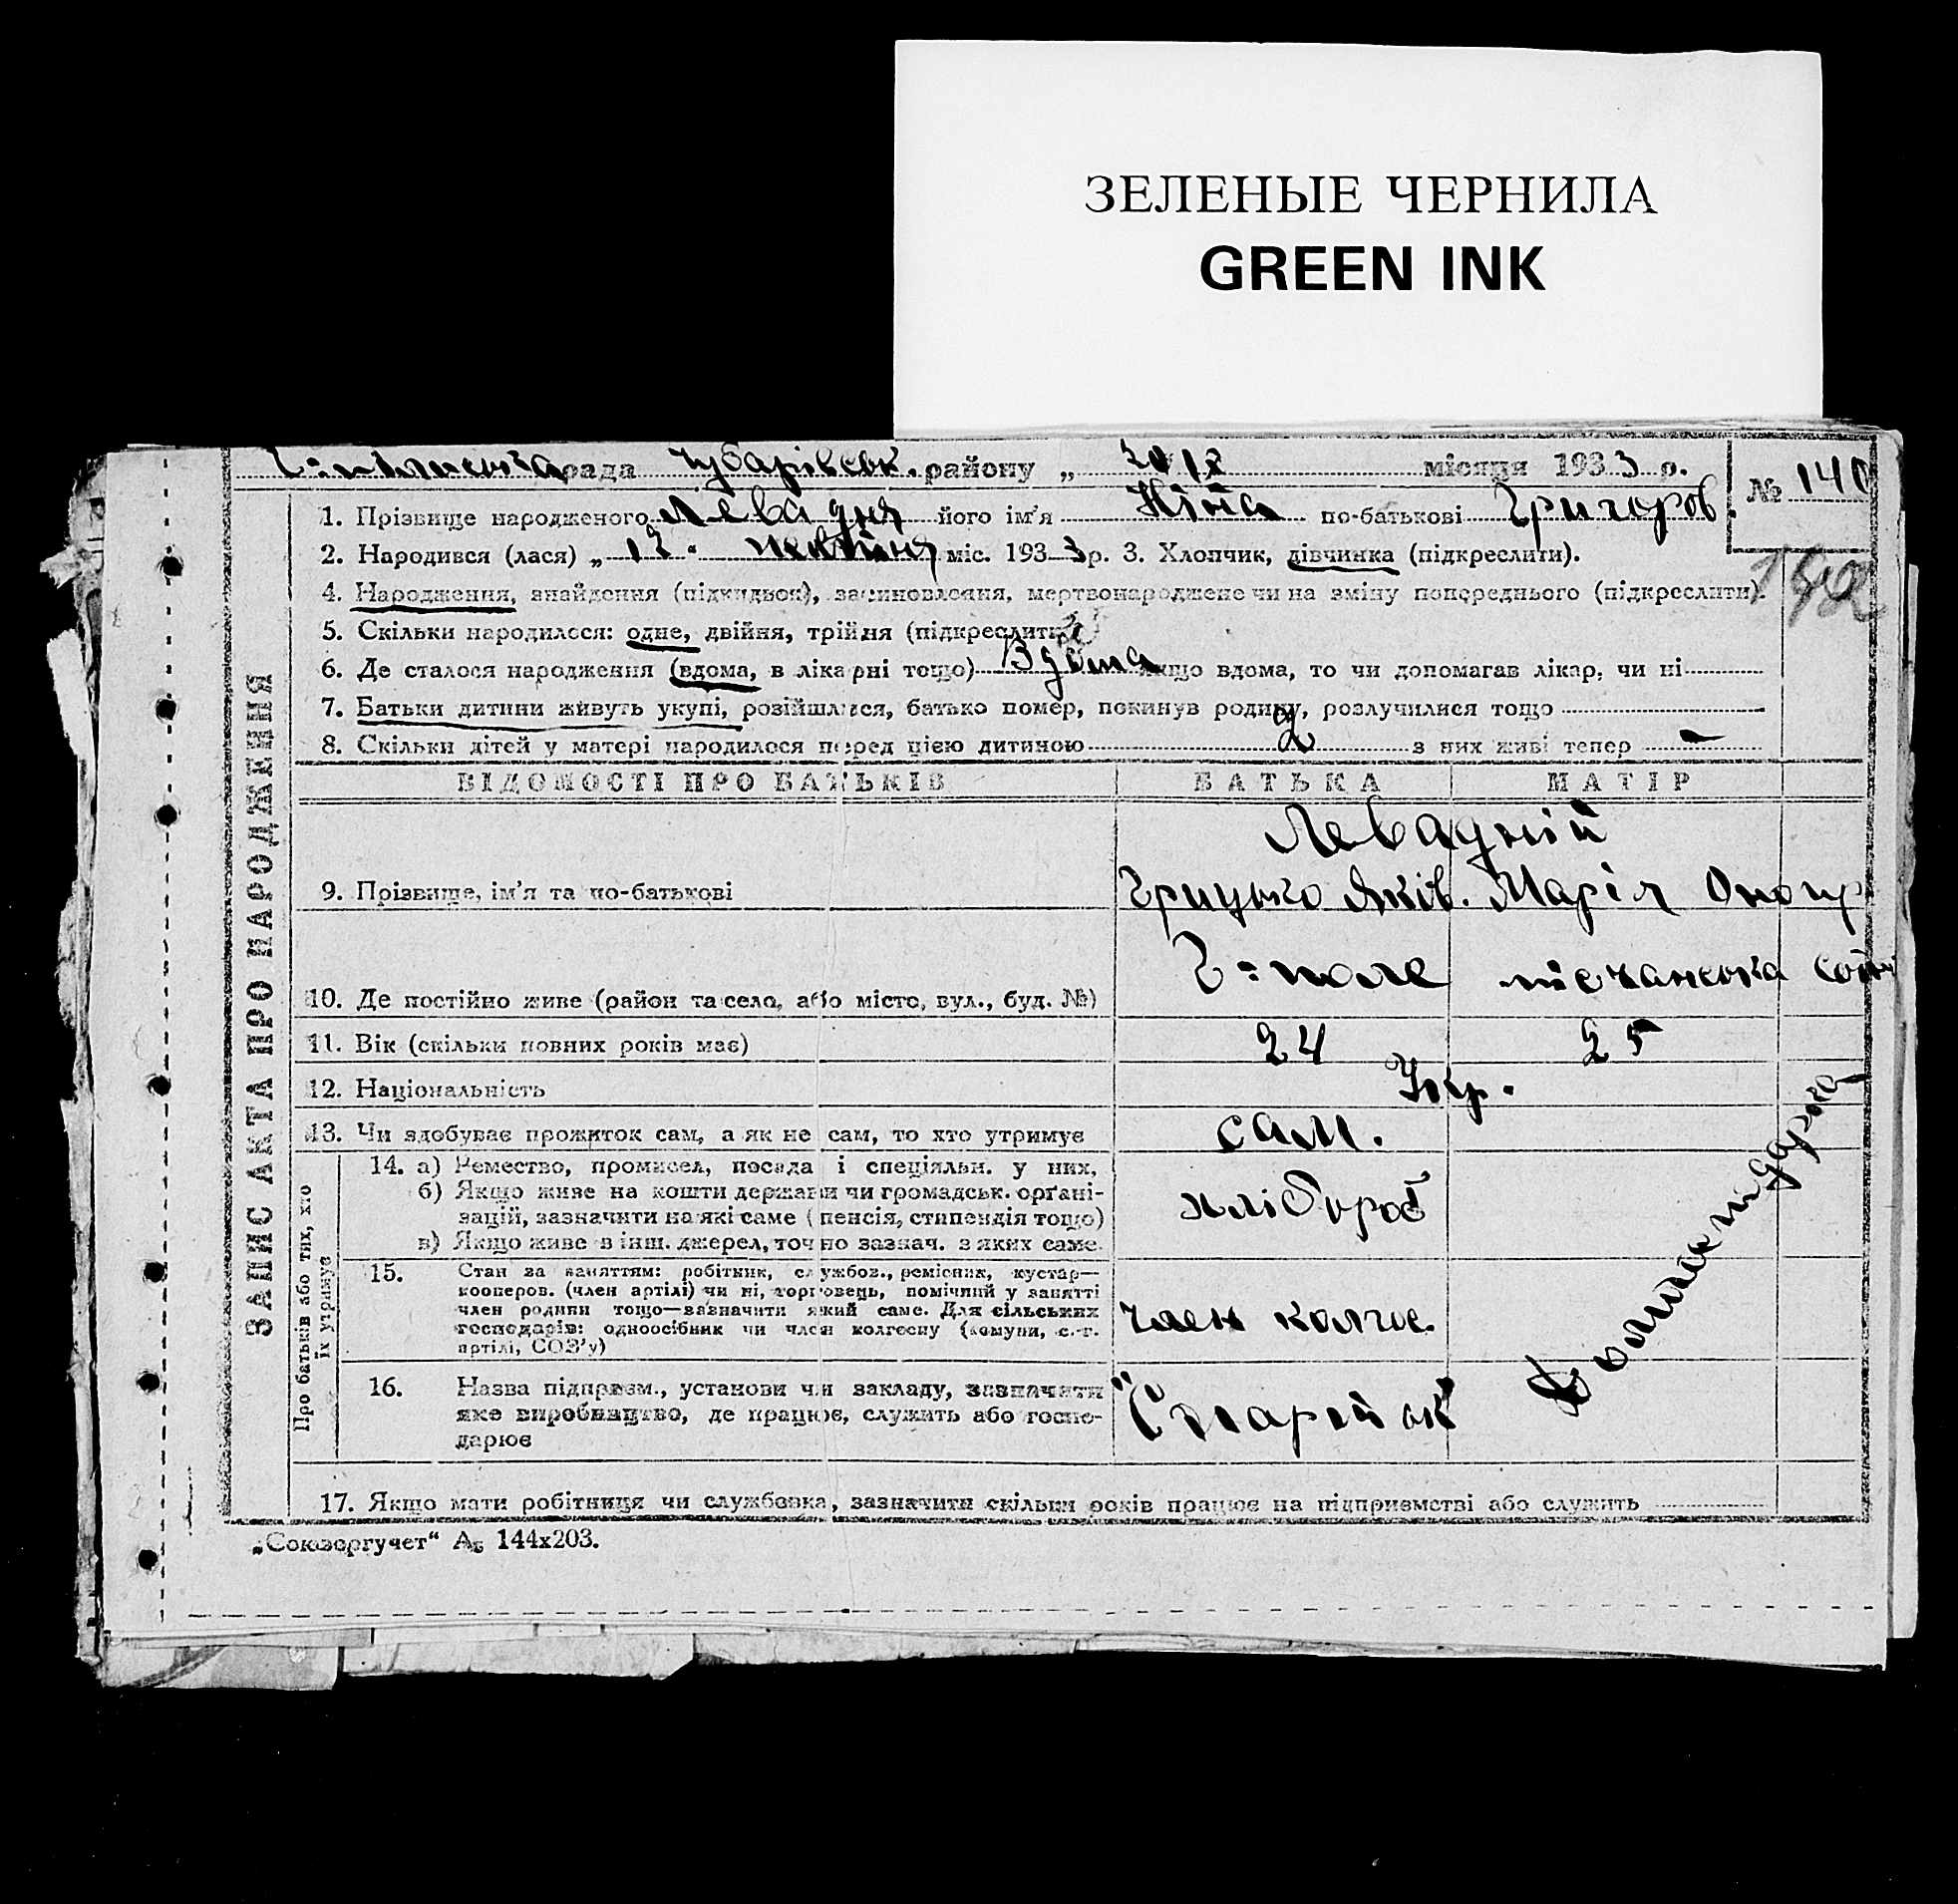 ЗЕЛЕНЫЕ ЧЕРНИЛА
GREEN INK
рада Чубарівськ. району „ місяця 1933 р.
№ 140
1. Прізвище народженого Левадня його ім'я Ніна по-батькові Григоров.
142
2. Народився (лася) „ міс. 1933 р. 3. Хлопчик, дівчинка (підкреслити).
4. Народження, знайдення (підкидьок), засиновлення, мертвонароджене чи на зміну попереднього (підкреслити).
5. Скільки народилося: одне, двійня, трійня (підкреслити)
6. Де сталося народження (вдома, в лікарні тощо) Вдома якщо вдома, то чи допомагав лікар, чи ні
7. Батьки дитини живуть укупі, розійшлися, батько помер, покинув родину, розлучилися тощо
8. Скільки дітей у матері народилося перед цією дитиною 2 з них живі тепер –
ЗАПИС АКТА ПРО НАРОДЖЕННЯ
ВІДОМОСТІ ПРО БАТЬКІВ БАТЬКА МАТІР
Левадній
9. Прізвище, ім'я та по-батькові Грицько Яків. Марія Оноп
10. Де постійно живе (район та село, або місто, вул., буд. №) Г=поле
11. Вік (скільки повних років має) 24 25
12. Національність Укр.
13. Чи здобуває прожиток сам, а як не сам, то хто утримує сам.
Про батьків або тих, хто їх утримує
14. а) Ремество, промисел, посада і спеціяльн. у них,
б) Якщо живе на кошти держави чи громадськ. органі-
зацій, зазначити на які саме (пенсія, стипендія тощо)
в) Якщо живе в інш. джерел, точно зазнач. з яких саме.
хлібороб
15. Стан за заняттям: робітник, службов., ремісник, кустар—
кооперов. (член артілі) чи ні, торговець, помічний у занятті
член родини тощо—зазначити який саме. Для сільських
господарів: одноосібник чи член колгоспу (комуни, с.-г.
артілі, СОЗ'у)
член колгос.
16. Назва підприєм., установи чи закладу, зазначити
яке виробництво, де працює, служить або госпо-
дарює
Домашнгдарка
17. Якщо мати робітниця чи службовка, зазначити скільки років працює на підприємстві або служить
„Союзоргучет“ А₅ 144х203.